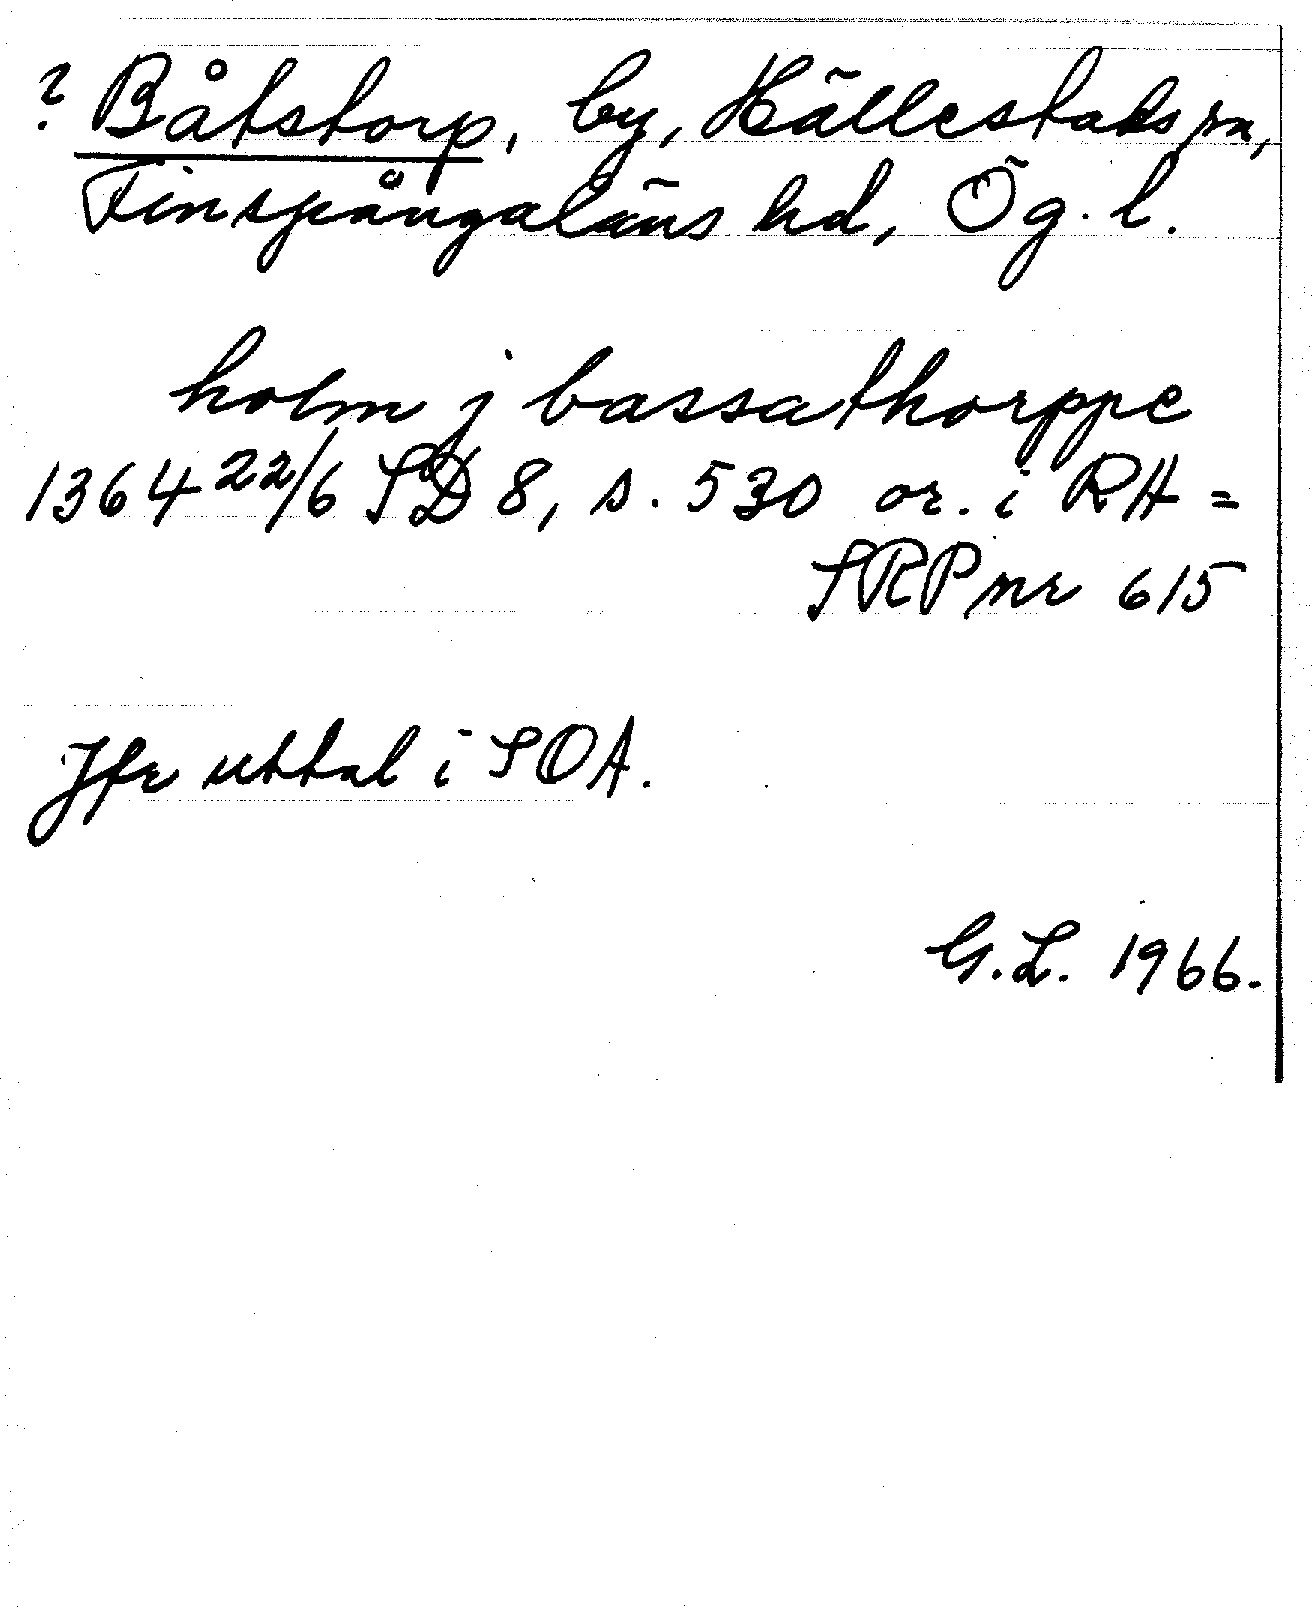 ? Båtstorp, by, Hällestads sn,
Finspångaläns hd, Ög. l.
holm j bassathorppe
1364 22/6 SD 8, s. 530 or. i RA =
SRP nr 615
Jfr uttal i SOA.
G.L. 1966.